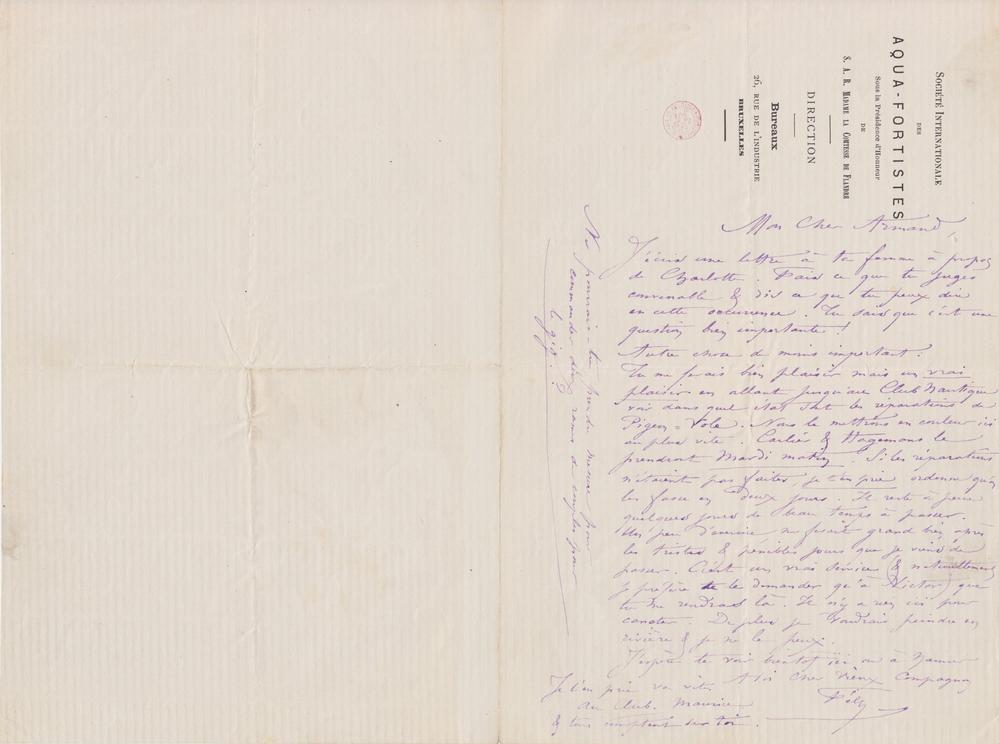 SOCIÉTÉ INTERNATIONALE
DES
AQUA-FORTISTES
Sous la Présidence d'Honneur
DE
S. A. R. MADAME LA COMTESSE DE FLANDRE
DIRECTION
Bureaux
26, RUE DE L'INDUSTRIE
BRUXELLES
Mon Cher Armand,
J'écris une lettre à ta femme à propos
de Charlotte. Fais ce que tu juges
convenable & dis ce que tu peux dire
en cette occurrence. Tu sais que c'est une
question bien importante!
Autre chose de moins important.
Tu me ferais bien plaisir mais un vrai
plaisir en allant jusqu'au Club Nautique
voir dans quel état sont les réparations de
Pigeon-Vole. Nous le mettrons en couleur ici
au plus vite. Carlier & Hagemans le
prendront Mardi matin. Si les réparations
n'étaient pas faites, je t'en prie ordonne qu'on
les fasse en deux jours. Il reste à peine
quelques jours de beau temps à passer.
Un peu d'exercice me ferait grand bien après
les tristes & pénibles jours que je viens de
passer. C'est un vrai service (& naturellement
je préfère te le demander qu'à Victor) que
tu me rendras là. Il n'y a rien ici pour
canoter. De plus je voudrais peindre en
rivière & je ne le peux.
J'espère te voir bientôt ici ou à Namur
A toi Cher Vieux Compagnon
Fély
Je t'en prie va vite
au Club. Maurice
& tous comptent sur toi.
Ne pourrais-tu prendre mesure pour
commander deux rames de couples pour
le gig?